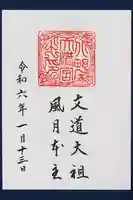 文道大祖
風月本主
令和六年一月十三日